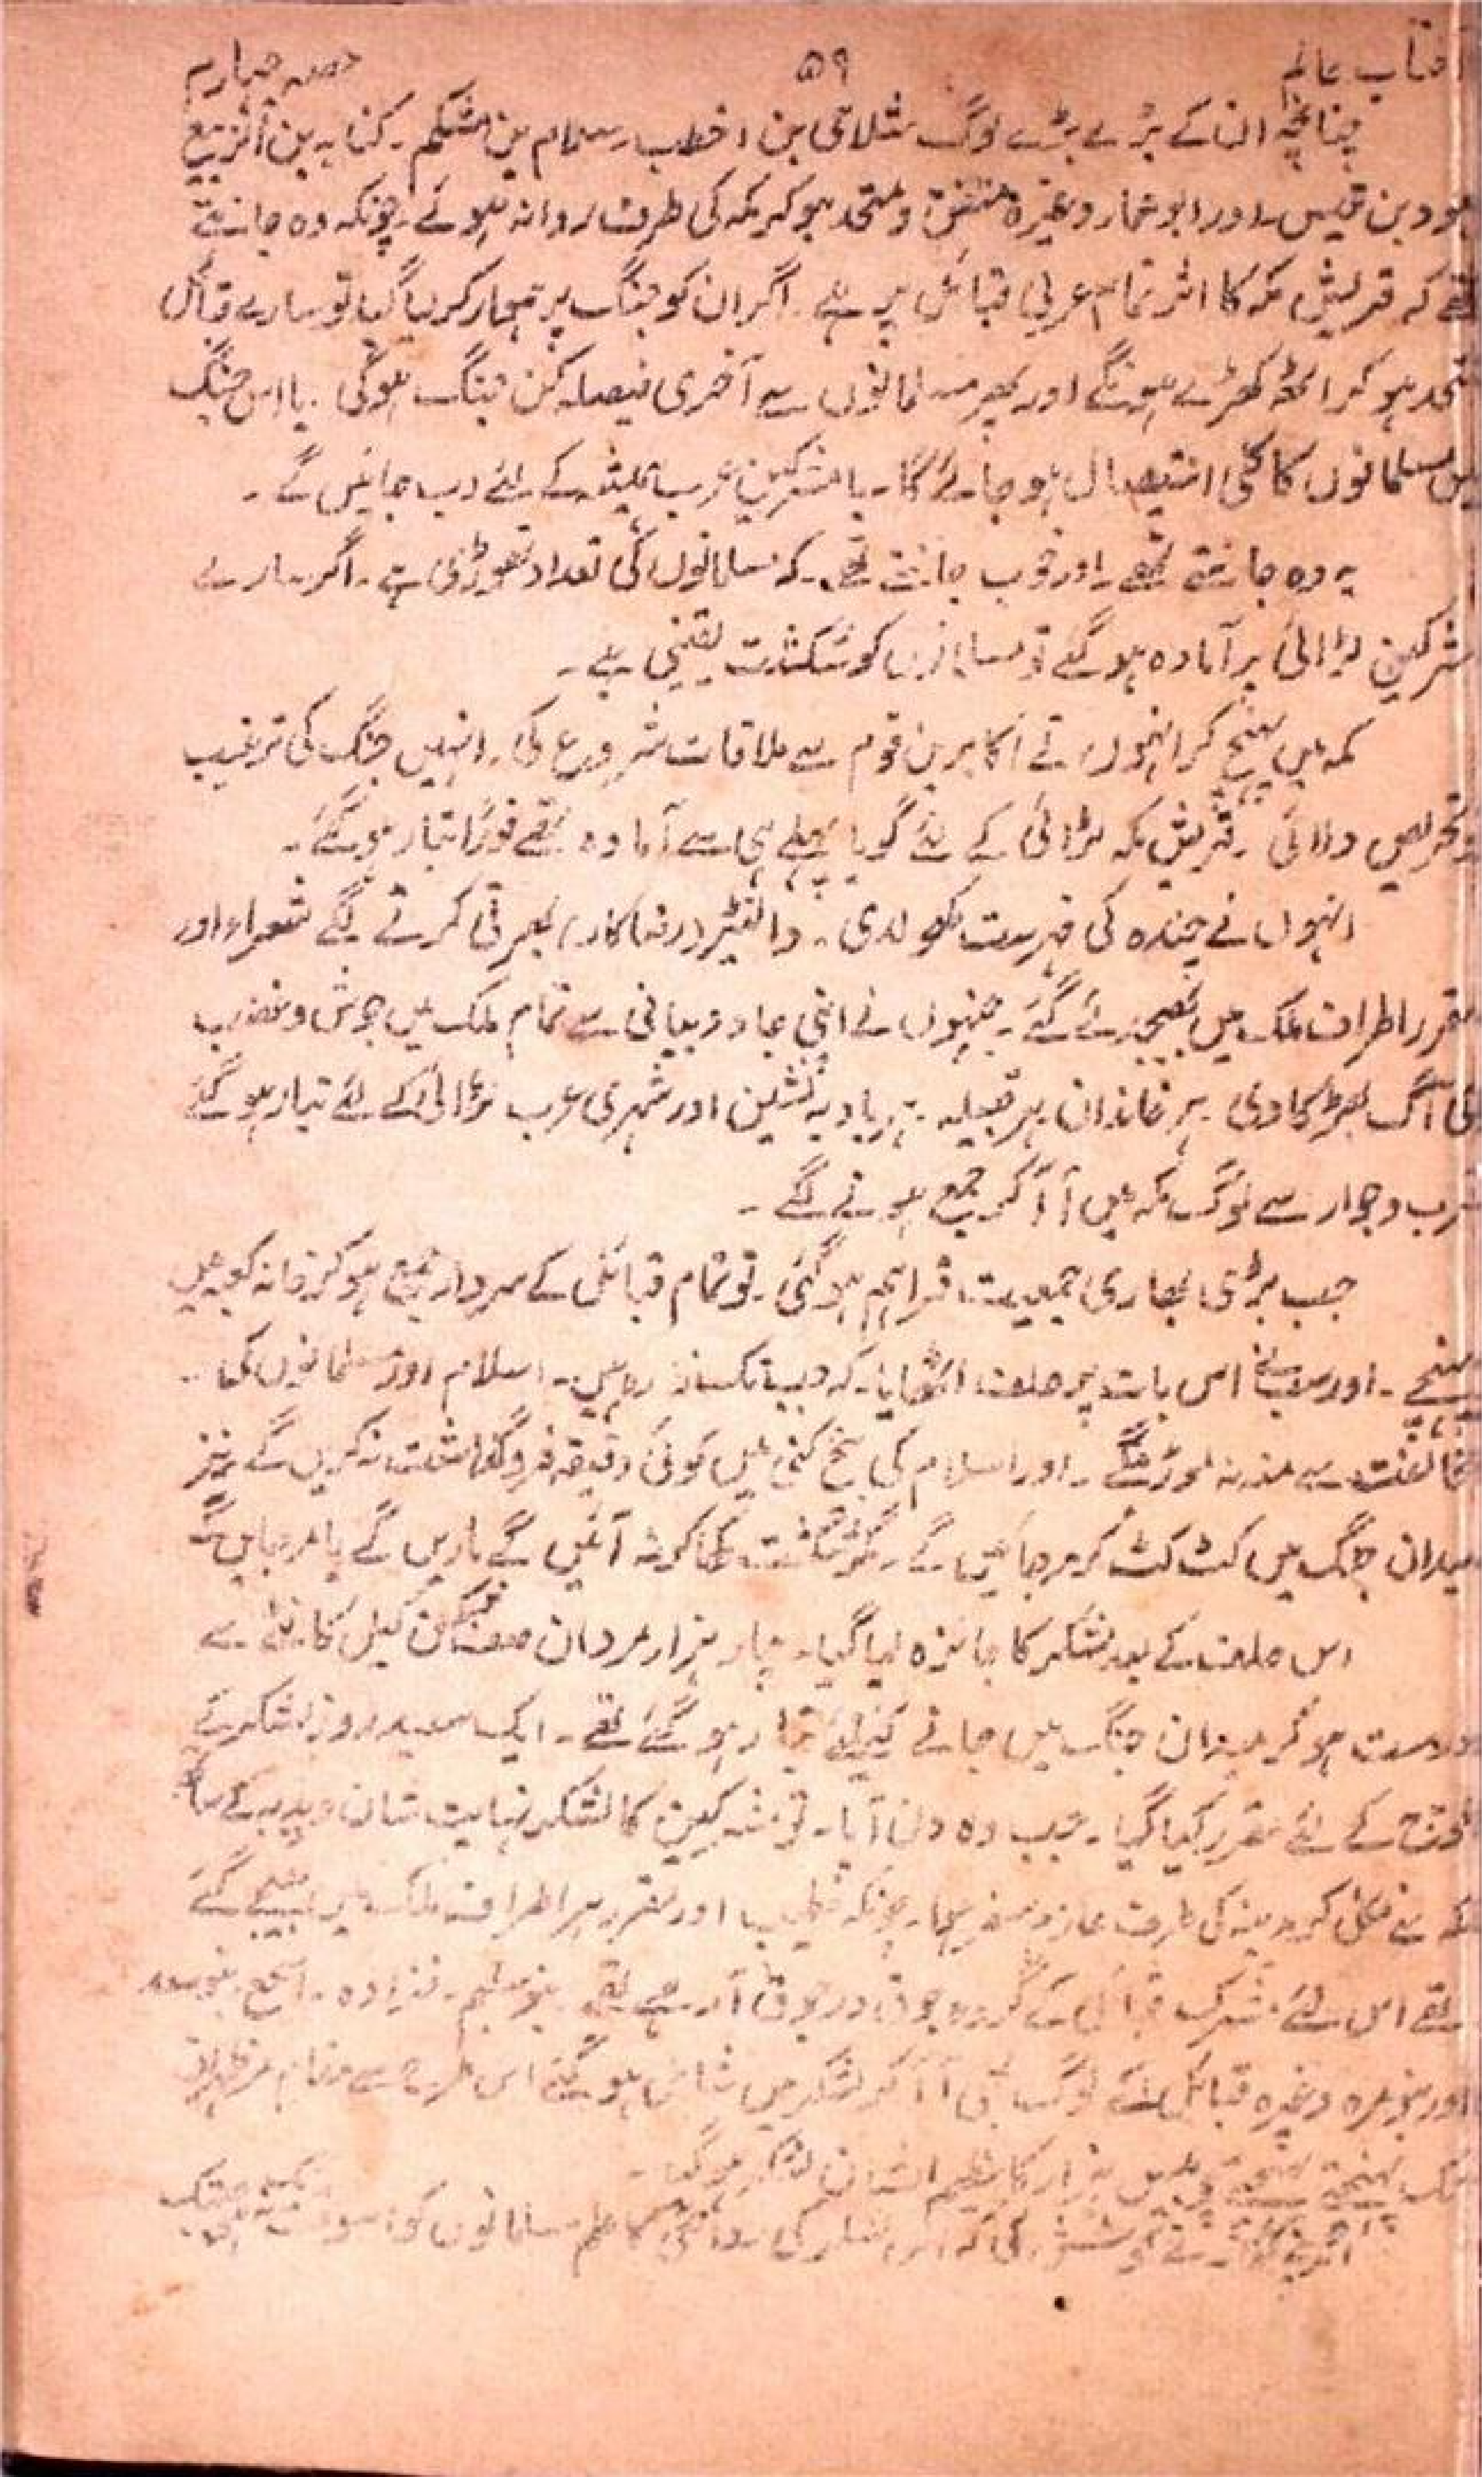 آفتاب عالم ۵۹ حصہ چہارم
چنانچہ ان کے بڑے بڑے لوگ مثلاً حی بن اخطب، سلام بن مشکم۔ کنانہ بن الربیع
ہود بن قیس۔ اور ابو عمار وغیرہ متفق و متحد ہو کر مکہ کی طرف روانہ ہوئے۔ چونکہ وہ جانتے
تھے کہ قریش مکہ کا اثر تمام عربی قبائل پر ہے۔ اگر ان کو جنگ پر تیار کر لیا گیا تو سارے قبائل
متحد ہو کر اٹھ کھڑے ہونگے اور پھر مسلمانوں سے آخری فیصلہ کن جنگ ہوگی۔ یا اس جنگ
میں مسلمانوں کا کلی استیصال ہو جائے گا۔ یا مشرکین عرب ہمیشہ کے لئے دب جائیں گے۔
یہ وہ جانتے تھے۔ اور خوب جانتے تھے۔ کہ مسلمانوں کی تعداد تھوڑی ہے۔ اگر سارے
مشرکین لڑائی پر آمادہ ہو گئے تو مسلمانوں کو شکست یقینی ہے۔
مکہ میں پہنچ کر انہوں نے اکابرین قوم سے ملاقات شروع کی۔ انہیں جنگ کی ترغیب
و تحریص دلائی۔ قریش مکہ لڑائی کے لئے گویا پہلے ہی سے آمادہ تھے فوراً تیار ہو گئے۔
انہوں نے چندہ کی فہرست کھولدی۔ والنٹیر (رضا کار) بھرتی کرنے لگے شعراء اور
مقرر اطراف ملک میں بھیجدئے گئے۔ جنہوں نے اپنی جادو بیانی سے تمام ملک میں جوش و غضب
کی آگ بھڑکا دی۔ ہر خاندان ہر قبیلہ۔ ہر بادیہ نشین اور شہری عرب لڑائی کے لئے تیار ہو گئے
قرب و جوار سے لوگ مکہ میں آ آ کر جمع ہونے لگے۔
جب بڑی بھاری جمعیت فراہم ہو گئی۔ تو تمام قبائل کے سردار جمع ہو کر خانہ کعبہ میں
پہنچے۔ اور سب نے اس بات پر حلف اٹھایا۔ کہ جب تک زندہ رہیں۔ اسلام اور مسلمانوں کی
مخالفت سے منہ نہ موڑینگے۔ اور اسلام کی بیخ کنی میں کوئی دقیقہ فروگذاشت نہ کریں گے نیز
میدان جنگ میں کٹ کٹ کر مر جائیں گے۔ مگر شکست کھا کر نہ آئیں گے ماریں گے یا مر جائیں گے
اس حلف کے بعد لشکر کا جائزہ لیا گیا۔ چار ہزار مردان صف شکن کیل کانٹے سے
درست ہو کر میدان جنگ میں جانے کیلئے تیار ہو گئے تھے۔ ایک سعید روز لشکر کے
کوچ کے لئے مقرر کیا گیا۔ جب وہ دن آیا۔ تو مشرکین کا لشکر نہایت شان و دبدبہ کے ساتھ
مکہ سے نکل کر مدینہ کی طرف عازم سفر ہوا۔ چونکہ خطیب اور مقرر ہر اطراف ملک میں بھیجے گئے
تھے اس لئے مشرک قبائل کے گروہ جوق در جوق آ رہے تھے۔ بنو سلیم۔ فزارہ۔ اشجع۔ بنو سعد
اور بنو مرہ وغیرہ قبائل کے لوگ بھی آ آ کر لشکر میں شامل ہو گئے اس طرح سے مقام مر ظہران
تک پہنچتے پہنچتے ہزار کا عظیم الشان لشکر ہو گیا۔
نے کوشش کی کہ اس لشکر کی روانگی کا علم مسلمانوں کو اسوقت تک